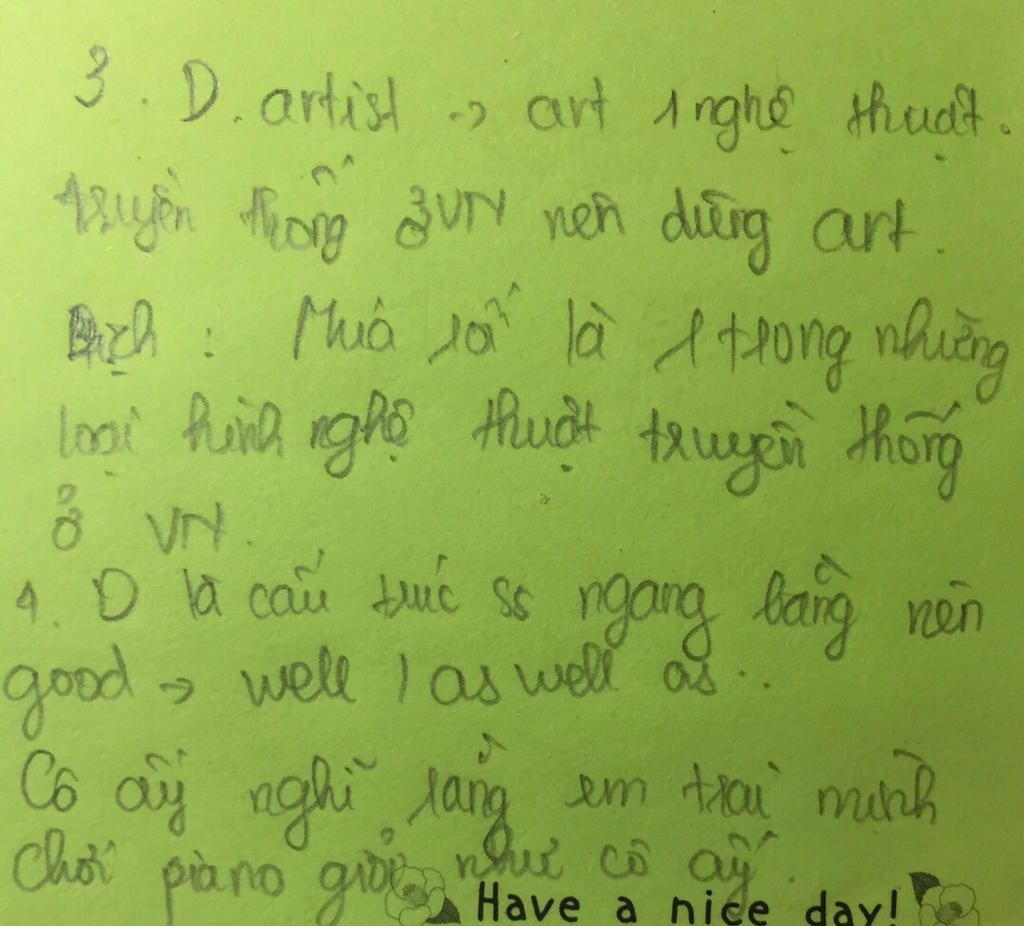 3. D. artist -> art 1 nghệ thuật.
truyền thống ở VN nên dùng art.
Dịch : Múa rối là 1 trong những
loại hình nghệ thuật truyền thống
ở VN.
4. D là cấu trúc ss ngang bằng nên
good -> well / as well as..
Cô ấy nghĩ rằng em trai mình
chơi piano giỏi như cô ấy.
Have a nice day!